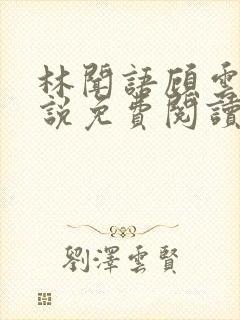 林聞語顧雲
說免費閱讀
劉澤雲賢